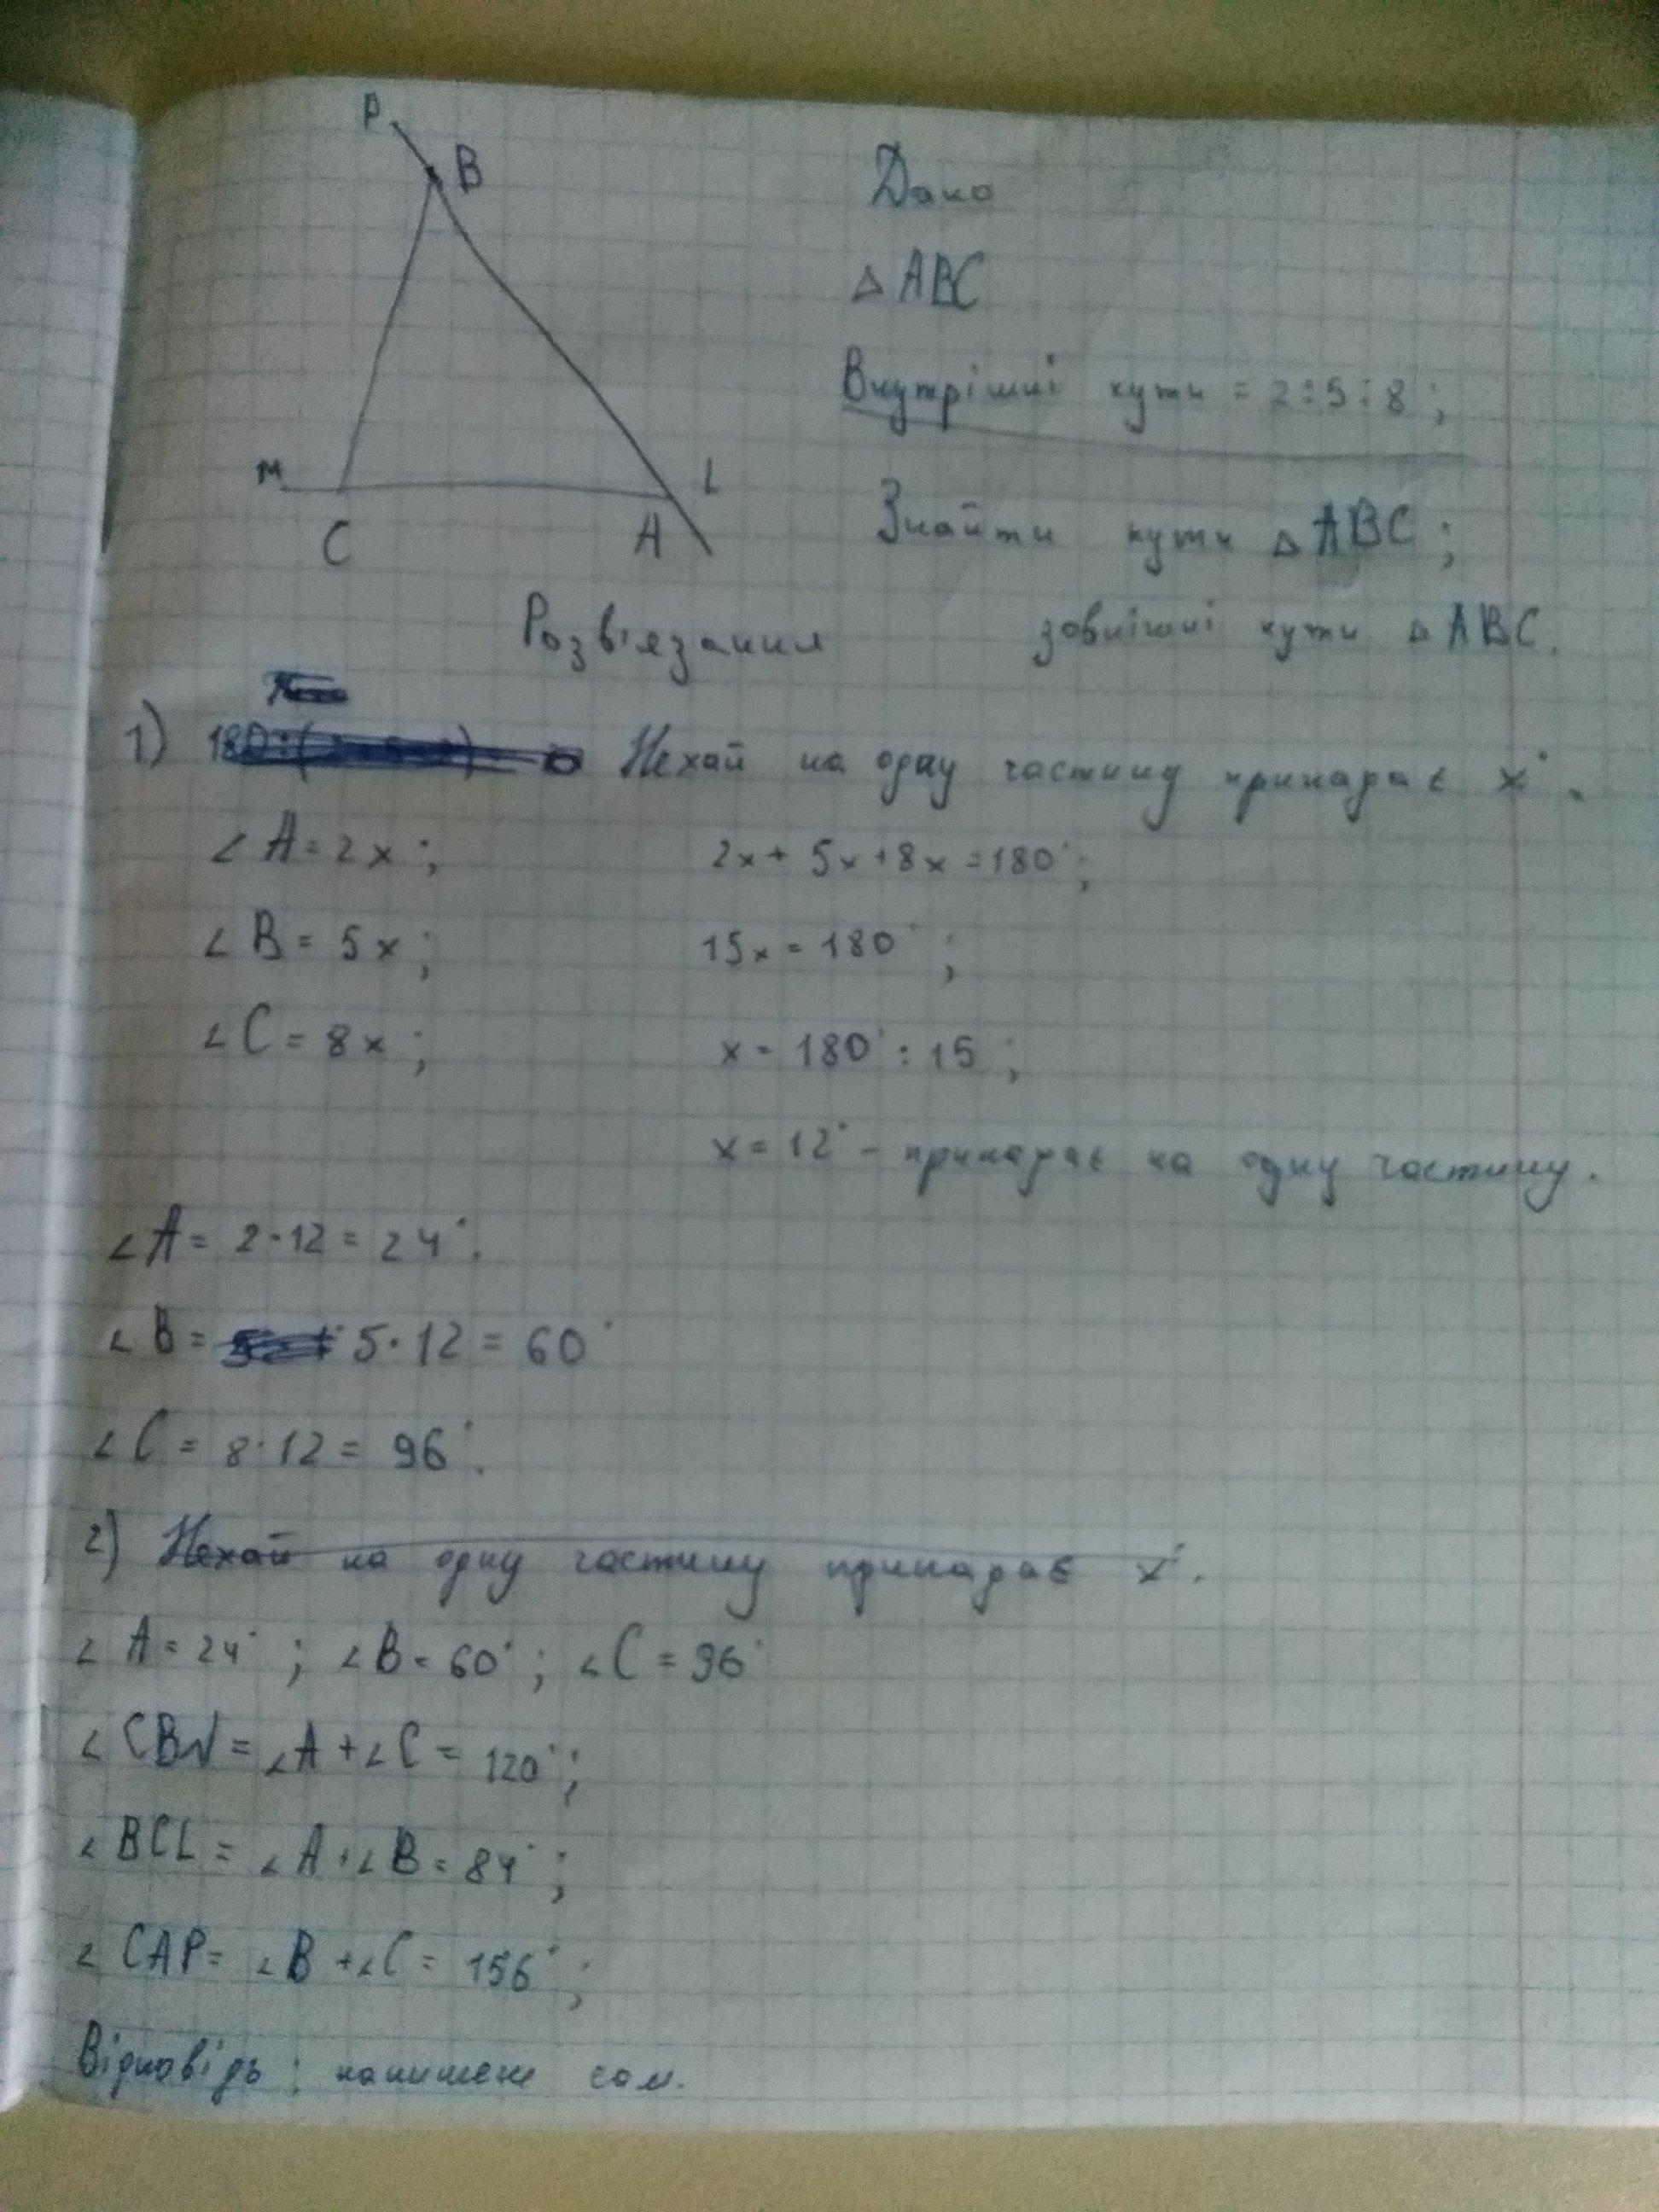 P
B
M
L
C
A
Дано
△ABC
Внутрішні кути = 2:5:8;
Знайти кути △ABC;
зовнішні кути △ABC.
Розв'язання
1) Нехай на одну частину припадає x°.
∠A = 2x;
2x + 5x + 8x = 180°;
∠B = 5x;
15x = 180°;
∠C = 8x;
x = 180° : 15;
x = 12° - припадає на одну частину.
∠A = 2·12 = 24°.
∠B = 5·12 = 60°
∠C = 8·12 = 96°.
2) Нехай на одну частину припадає x°.
∠A = 24°; ∠B = 60°; ∠C = 96°
∠CBN = ∠A + ∠C = 120°;
∠BCL = ∠A + ∠B = 84°;
∠CAP = ∠B + ∠C = 156°;
Відповідь: напишеш сам.